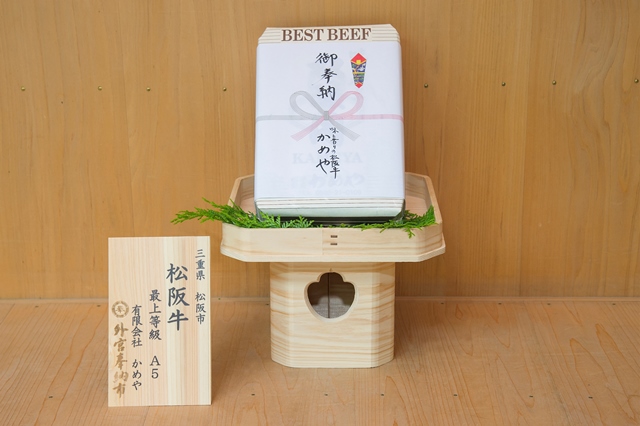 BEST BEEF
御奉納
味の宝石の松阪牛
かめや
三重県 松阪市
松阪牛
最上等級 A5
有限会社 かめや
外宮奉納市